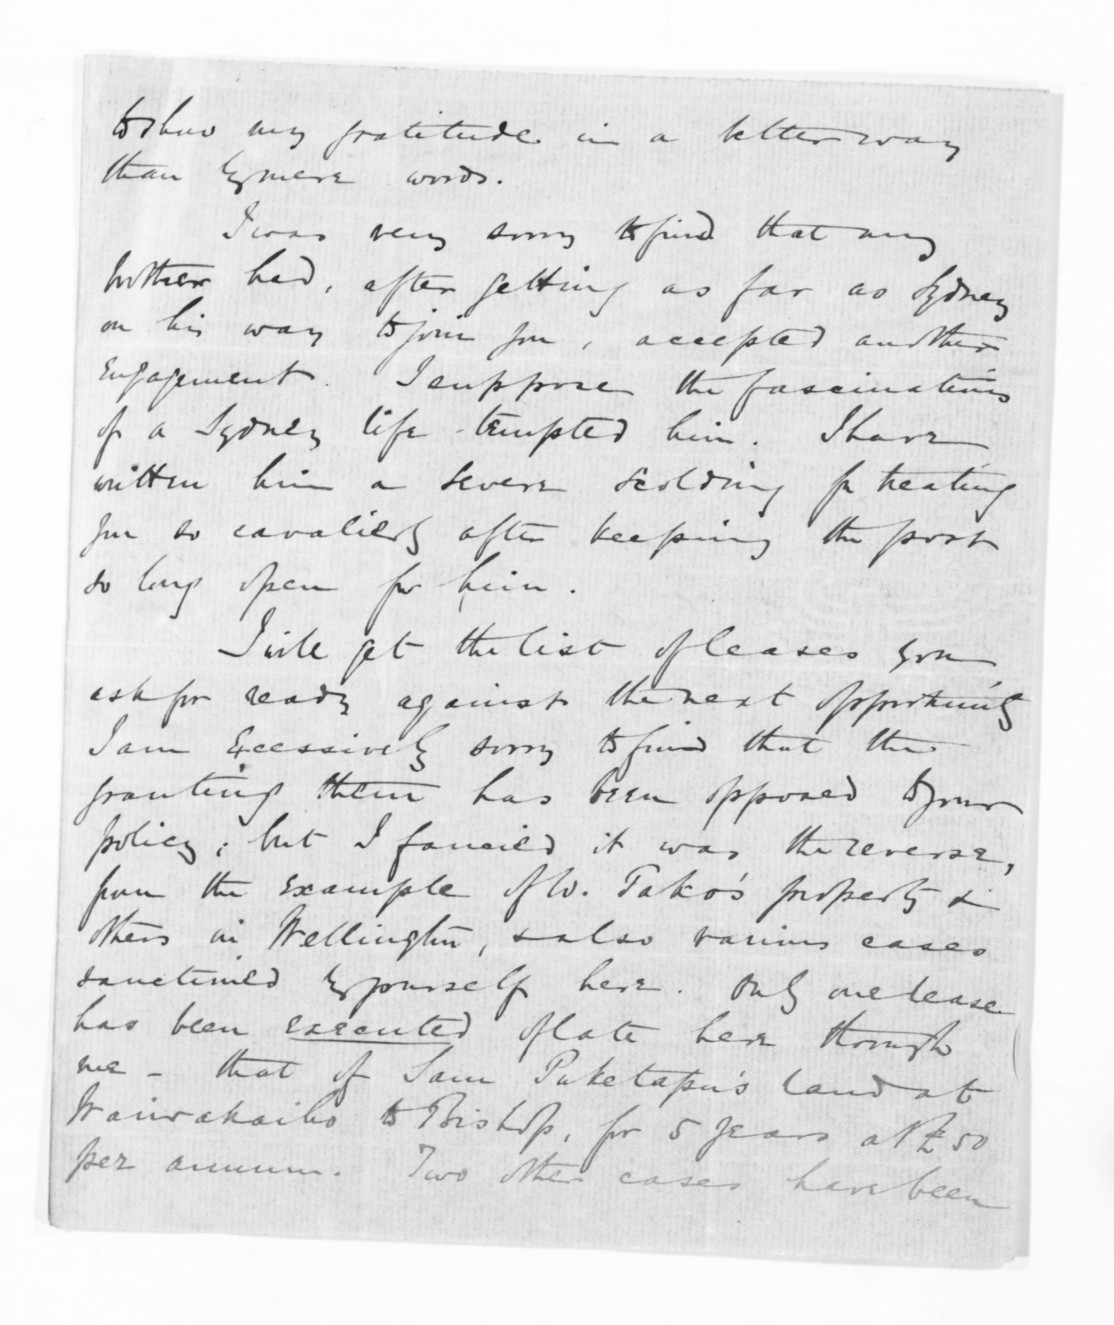 to show my gratitude in a better way
than by mere words.
I was very sorry to find that my
brother had, after getting as far as Sydney
on his way to join you, accepted another
engagement. I suppose the fascinations
of a Sydney life tempted him. I have
written him a severe scolding for treating
you so cavalierly after keeping the post
so long open for him.
I will get the list of leases you
ask for ready against the next opportunity
I am excessively sorry to find that the
granting them has been opposed to your
policy; but I fancied it was the reverse,
from the example of W. Tako's property &
others in Wellington, & also various cases
sanctioned by yourself here. Only one lease
has been executed of late here through
me - that of Sam Puketapu's land at
Waiwakaiho to Bishop, for 5 years at £50
per annum. Two other cases have been